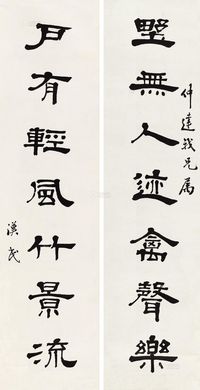 仲達我兄属
墅無人迹禽聲樂
戶有輕風竹景流
漢民